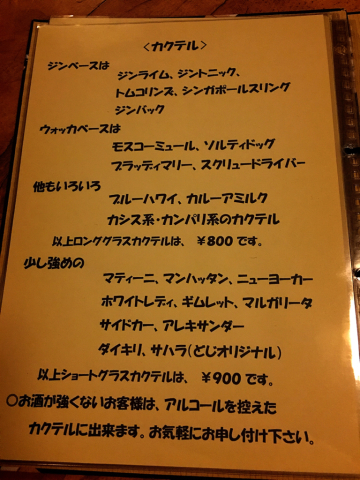 ＜カクテル＞
ジンベースは
ジンライム、ジントニック、
トムコリンズ、シンガポールスリング
ジンバック
ウォッカベースは
モスコーミュール、ソルティドッグ
ブラッディマリー、スクリュードライバー
他もいろいろ
ブルーハワイ、カルーアミルク
カシス系・カンパリ系のカクテル
以上ロンググラスカクテルは、￥800です。
少し強めの
マティーニ、マンハッタン、ニューヨーカー
ホワイトレディ、ギムレット、マルガリータ
サイドカー、アレキサンダー
ダイキリ、サハラ（どじオリジナル）
以上ショートグラスカクテルは、￥900です。
○お酒が強くないお客様は、アルコールを控えた
カクテルに出来ます。お気軽にお申し付け下さい。